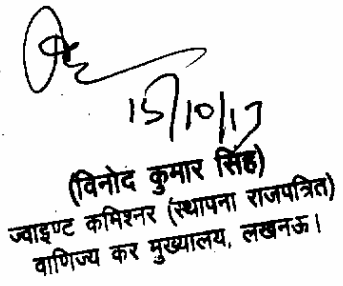 15/10/17
(विनोद कुमार सिंह)
ज्वाइण्ट कमिश्नर (स्थापना राजपत्रित)
वाणिज्य कर मुख्यालय, लखनऊ।